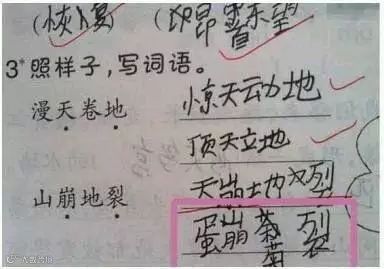 (恢复) (卬昂首东望
3*照样子，写词语。
惊天动地
漫天卷地
顶天立地
天崩地裂
山崩地裂
蛋崩菊裂